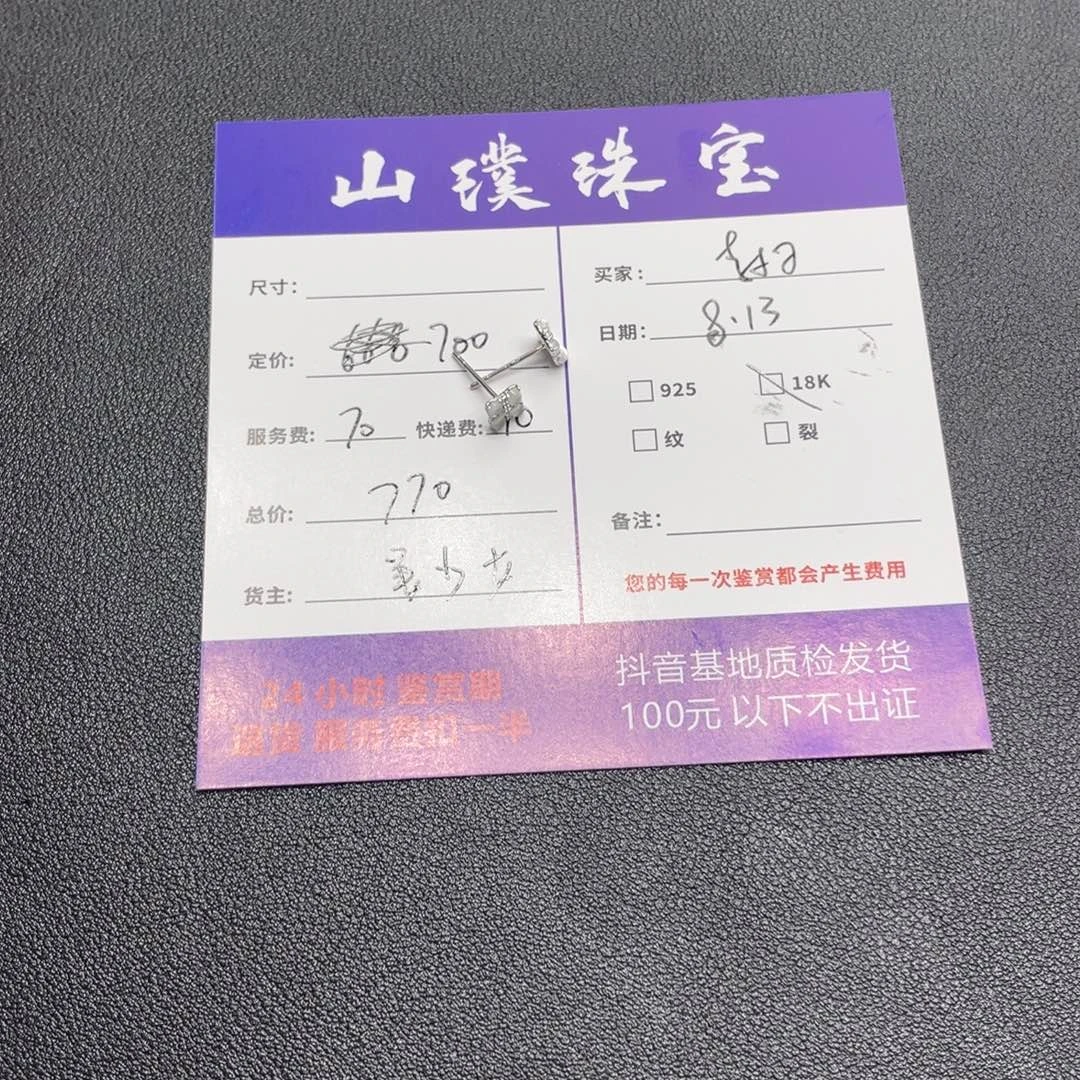 山璞珠宝
尺寸:
定价: 700
服务费: 70 快递费: 10
总价: 770
货主:
买家:
日期: 8.13
925 18K
纹 裂
备注:
您的每一次鉴赏都会产生费用
24小时鉴赏期
退货 服务费扣一半
抖音基地质检发货
100元以下不出证